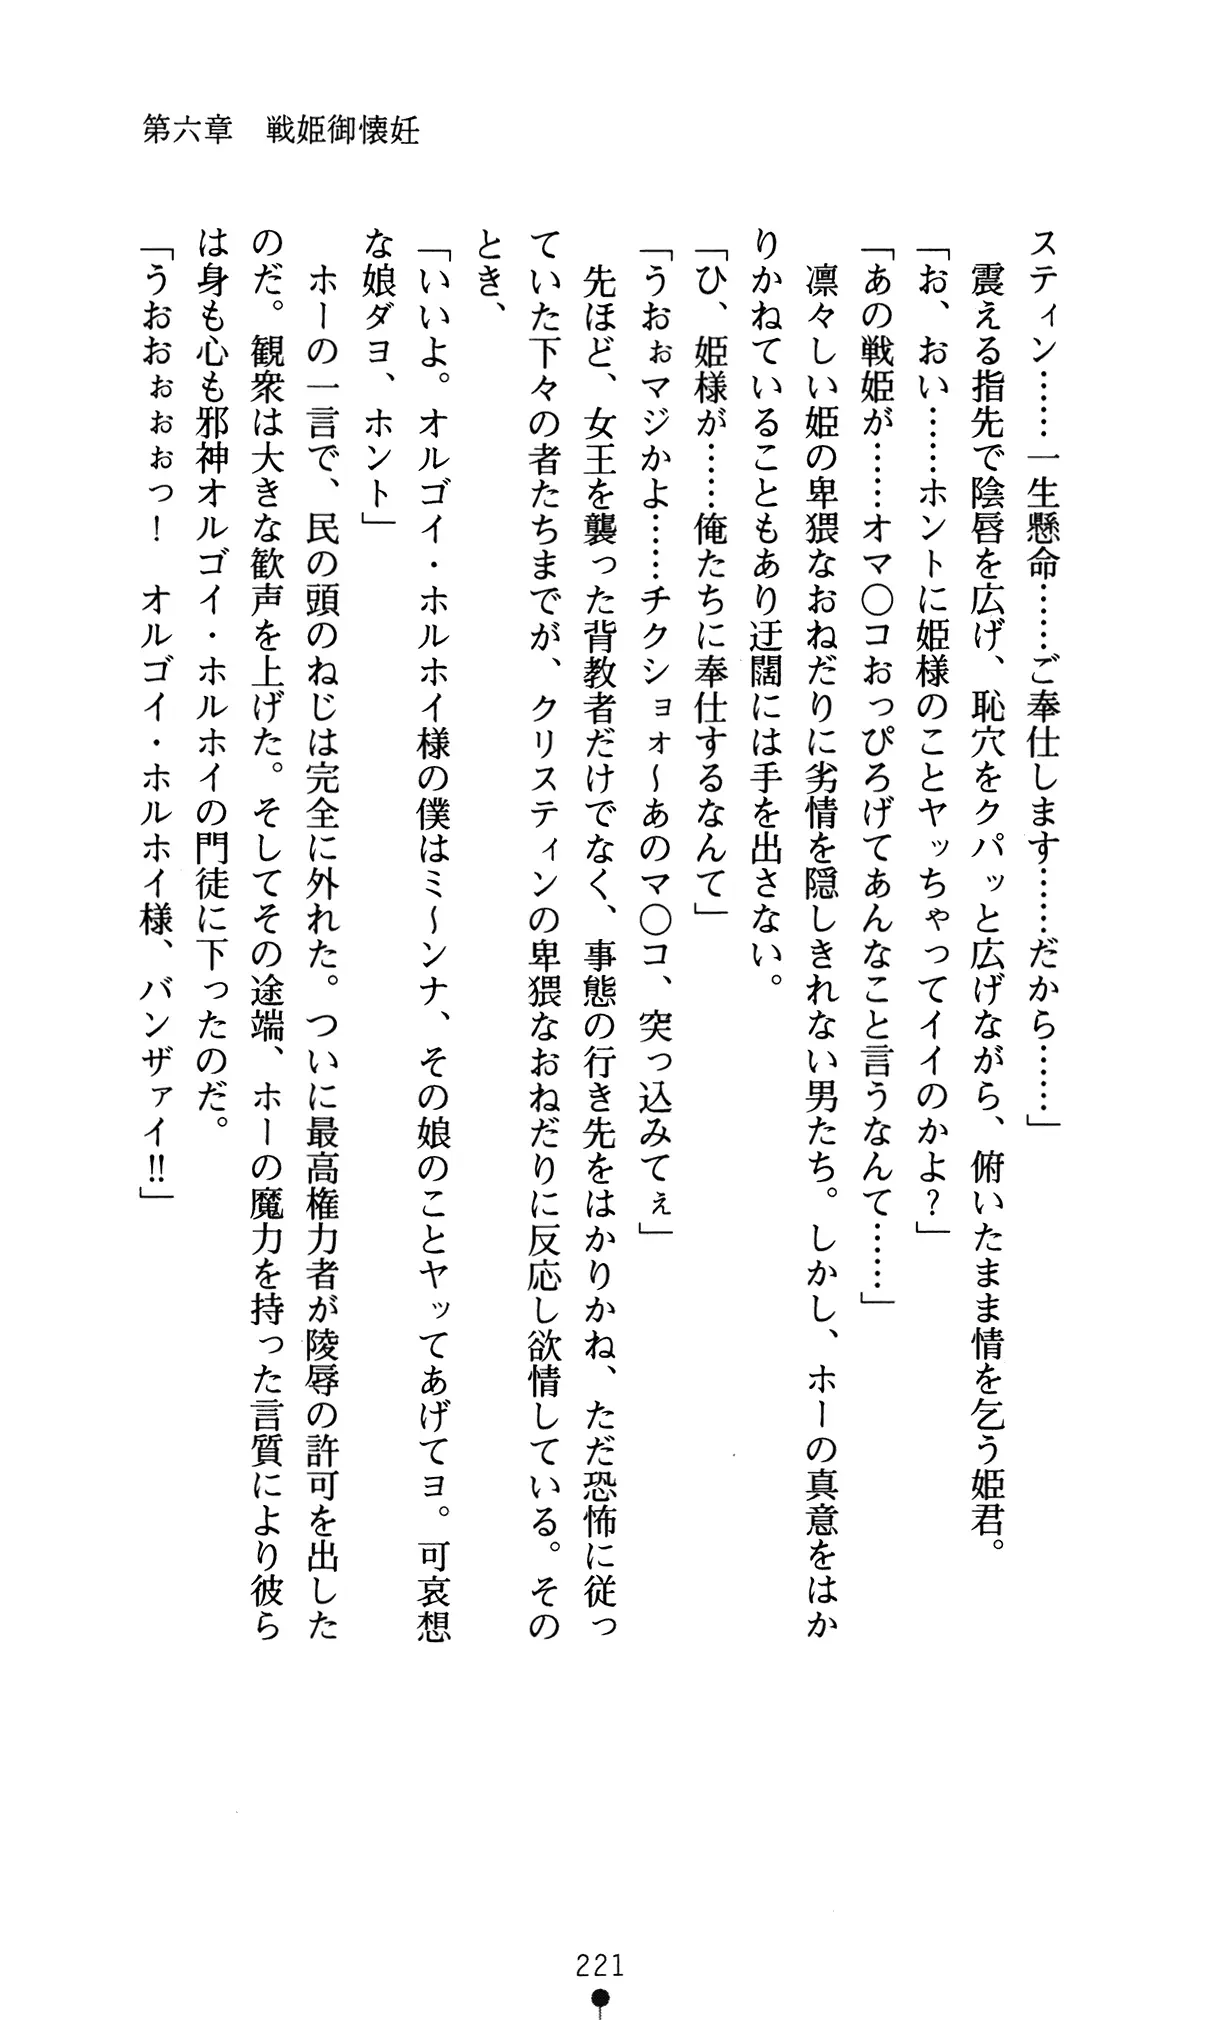 第六章　戦姫御懐妊
スティン……一生懸命……ご奉仕します……だから……」
　震える指先で陰唇を広げ、恥穴をクパッと広げながら、俯いたまま情を乞う姫君。
「お、おい……ホントに姫様のことヤッちゃってイイのかよ？」
「あの戦姫が……オマ〇コおっぴろげてあんなこと言うなんて……」
　凛々しい姫の卑猥なおねだりに劣情を隠しきれない男たち。しかし、ホーの真意をはか
りかねていることもあり迂闊には手を出さない。
「ひ、姫様が……俺たちに奉仕するなんて」
「うおぉマジかよ……チクショォ～あのマ〇コ、突っ込みてぇ」
　先ほど、女王を襲った背教者だけでなく、事態の行き先をはかりかね、ただ恐怖に従っ
ていた下々の者たちまでが、クリスティンの卑猥なおねだりに反応し欲情している。その
とき、
「いいよ。オルゴイ・ホルホイ様の僕はミ～ンナ、その娘のことヤッてあげてヨ。可哀想
な娘ダヨ、ホント」
　ホーの一言で、民の頭のねじは完全に外れた。ついに最高権力者が陵辱の許可を出した
のだ。観衆は大きな歓声を上げた。そしてその途端、ホーの魔力を持った言質により彼ら
は身も心も邪神オルゴイ・ホルホイの門徒に下ったのだ。
「うおおぉぉぉっ！　オルゴイ・ホルホイ様、バンザァイ!!」
221